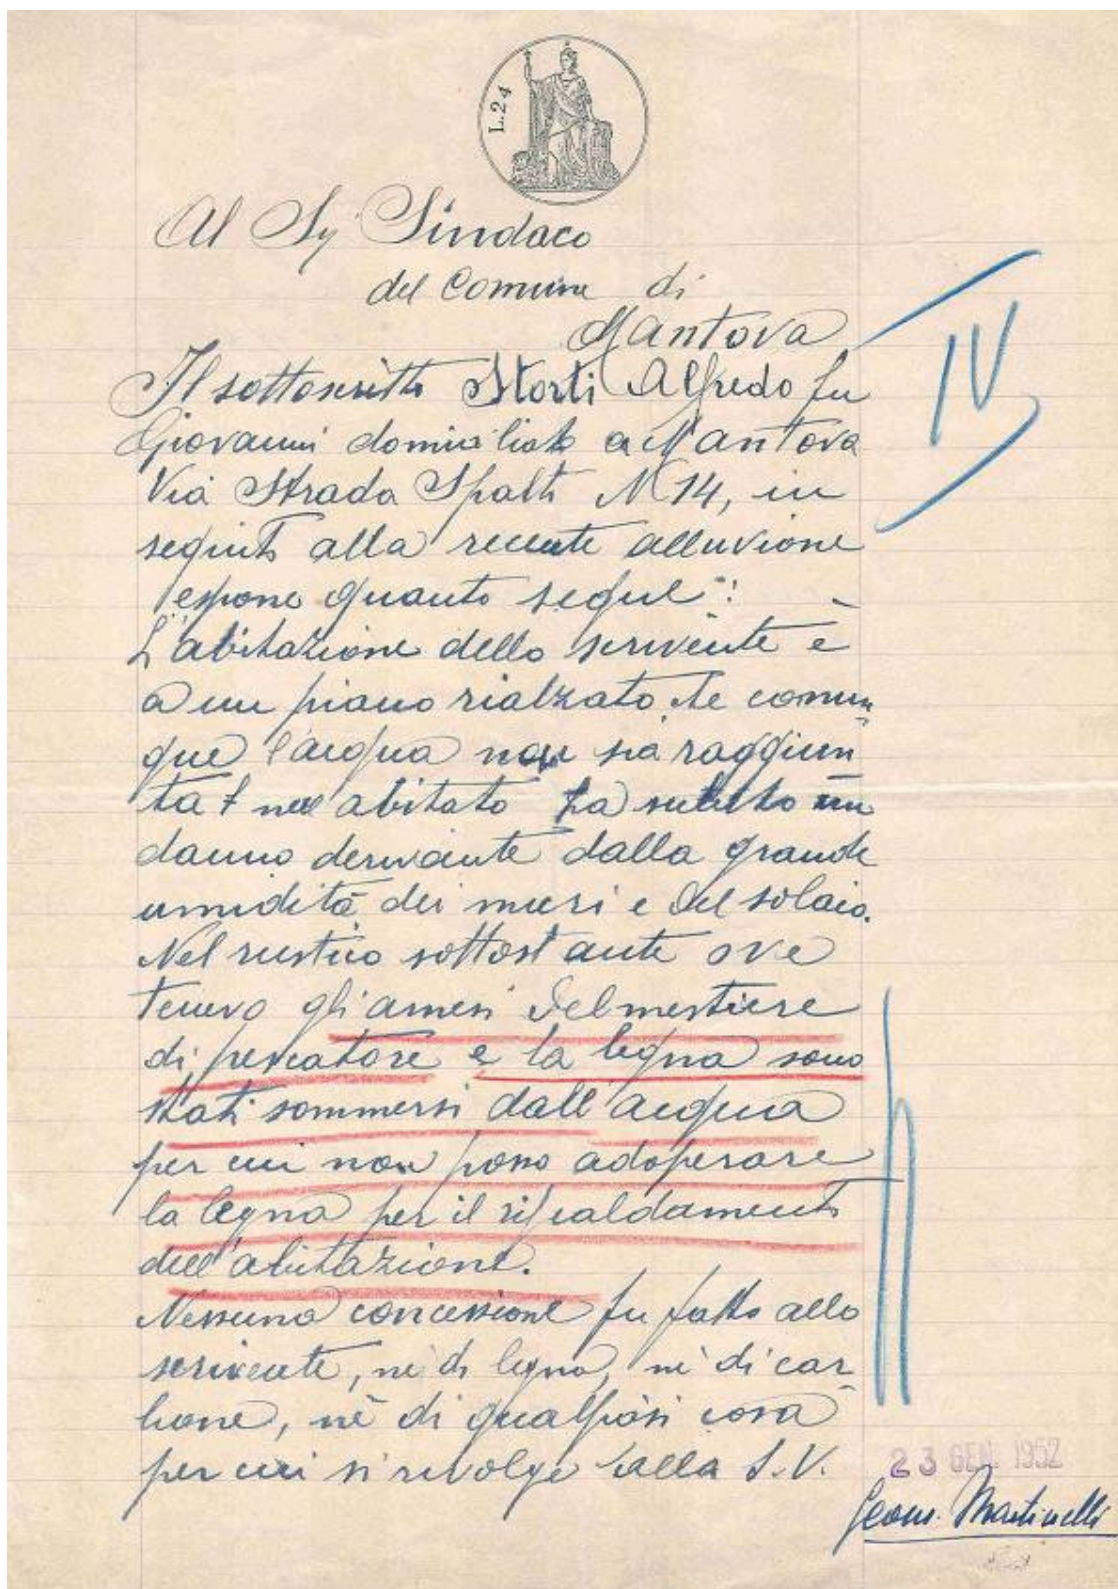 L. 24
Al Sg. Sindaco
del Comune di
Mantova
Il sottoscritto Storti Alfredo fu
Giovanni domiciliato a Mantova
Via Strada Spalti N 14, in
seguito alla recente alluvione
espone quanto segue:
L'abitazione dello scrivente è
a un piano rialzato, se comun
que l'acqua non sia raggiun
ta nell'abitato ha subito un
danno derivante dalla grande
umidità dei muri e del solaio.
Nel rustico sottostante ove
tenevo gli arnesi del mestiere
di pescatore e la legna sono
stati sommersi dall'acqua
per cui non posso adoperare
la legna per il riscaldamento
dell'abitazione.
Nessuna concessione fu fatto allo
scrivente, nè di legna, nè di car
bone, nè di qualsiasi cosa
per cui si rivolge alla S.V.
IV
23 GEN. 1952
Geom. Martinelli